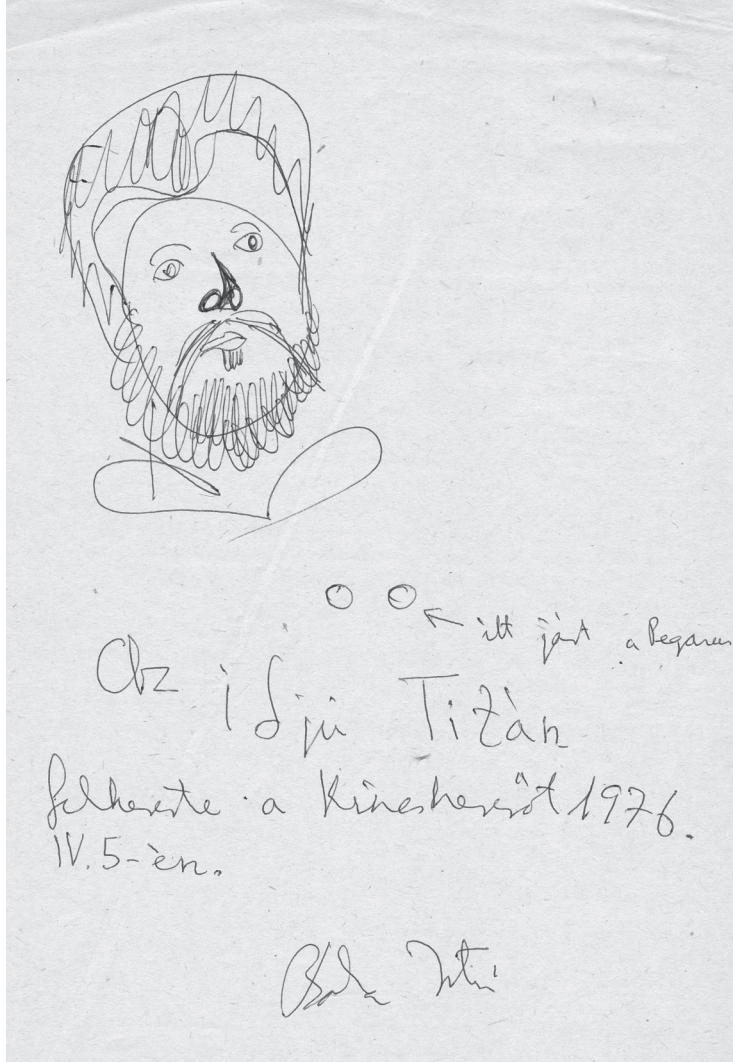 itt járt a Pegazus
Az ifjú Titán
felkereste a Kincskeresőt 1976.
IV. 5-én.